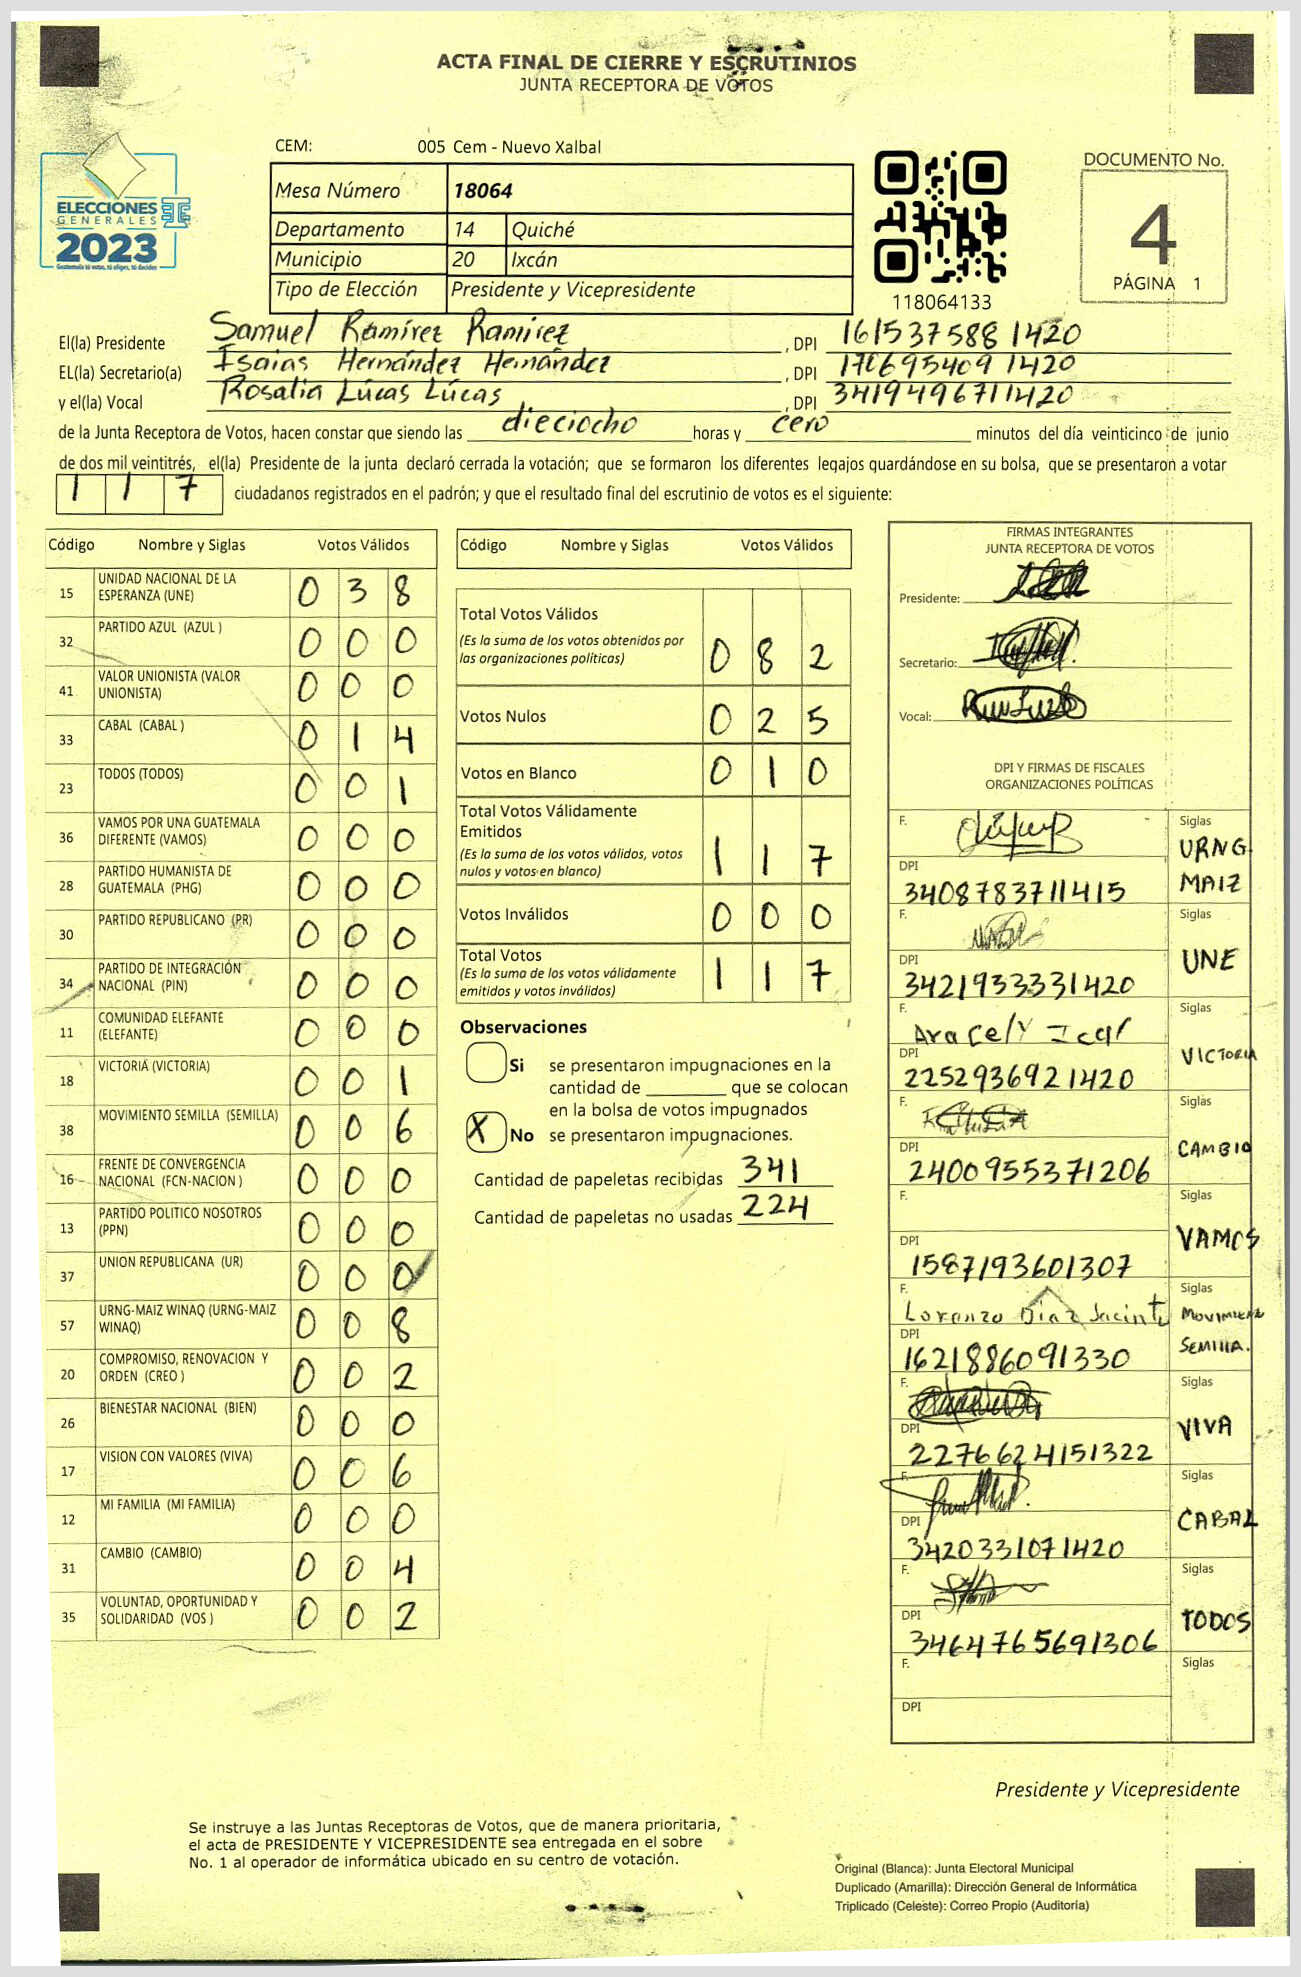 ACTA FINAL DE CIERRE Y ESCRUTINIOS
JUNTA RECEPTORA DE VOTOS
CEM: 005 Cem - Nuevo Xalbal
ELECCIONES
GENERALES
2023
Guatemala tú votas, tú eliges, tú decides
Mesa Número 18064
Departamento 14 Quiché
Municipio 20 Ixcán
Tipo de Elección Presidente y Vicepresidente
118064133
DOCUMENTO No.
4
PÁGINA 1
El(la) Presidente Samuel Ramírez Ramirez , DPI 161537588 1420
EL(la) Secretario(a) Isaías Hernández Hernández , DPI 170695409 1420
y el(la) Vocal Rosalia Lúcas Lúcas , DPI 3419496711420
de la Junta Receptora de Votos, hacen constar que siendo las dieciocho horas y cero minutos del día veinticinco de junio
de dos mil veintitrés, el(la) Presidente de la junta declaró cerrada la votación; que se formaron los diferentes legajos guardándose en su bolsa, que se presentaron a votar
1 1 7 ciudadanos registrados en el padrón; y que el resultado final del escrutinio de votos es el siguiente:
Código Nombre y Siglas Votos Válidos
15 UNIDAD NACIONAL DE LA ESPERANZA (UNE) 0 3 8
32 PARTIDO AZUL (AZUL ) 0 0 0
41 VALOR UNIONISTA (VALOR UNIONISTA) 0 0 0
33 CABAL (CABAL ) 0 1 4
23 TODOS (TODOS) 0 0 1
36 VAMOS POR UNA GUATEMALA DIFERENTE (VAMOS) 0 0 0
28 PARTIDO HUMANISTA DE GUATEMALA (PHG) 0 0 0
30 PARTIDO REPUBLICANO (PR) 0 0 0
34 PARTIDO DE INTEGRACIÓN NACIONAL (PIN) 0 0 0
11 COMUNIDAD ELEFANTE (ELEFANTE) 0 0 0
18 VICTORIA (VICTORIA) 0 0 1
38 MOVIMIENTO SEMILLA (SEMILLA) 0 0 6
16 FRENTE DE CONVERGENCIA NACIONAL (FCN-NACION ) 0 0 0
13 PARTIDO POLITICO NOSOTROS (PPN) 0 0 0
37 UNION REPUBLICANA (UR) 0 0 0
57 URNG-MAIZ WINAQ (URNG-MAIZ WINAQ) 0 0 8
20 COMPROMISO, RENOVACION Y ORDEN (CREO ) 0 0 2
26 BIENESTAR NACIONAL (BIEN) 0 0 0
17 VISION CON VALORES (VIVA) 0 0 6
12 MI FAMILIA (MI FAMILIA) 0 0 0
31 CAMBIO (CAMBIO) 0 0 4
35 VOLUNTAD, OPORTUNIDAD Y SOLIDARIDAD (VOS ) 0 0 2
Código Nombre y Siglas Votos Válidos
Total Votos Válidos
(Es la suma de los votos obtenidos por
las organizaciones políticas) 0 8 2
Votos Nulos 0 2 5
Votos en Blanco 0 1 0
Total Votos Válidamente
Emitidos
(Es la suma de los votos válidos, votos
nulos y votos en blanco) 1 1 7
Votos Inválidos 0 0 0
Total Votos
(Es la suma de los votos válidamente
emitidos y votos inválidos) 1 1 7
Observaciones
Si se presentaron impugnaciones en la
cantidad de ________ que se colocan
en la bolsa de votos impugnados
X No se presentaron impugnaciones.
Cantidad de papeletas recibidas 341
Cantidad de papeletas no usadas 224
FIRMAS INTEGRANTES
JUNTA RECEPTORA DE VOTOS
Presidente:
Secretario:
Vocal:
DPI Y FIRMAS DE FISCALES
ORGANIZACIONES POLÍTICAS
F. Siglas
URNG
MAIZ
DPI
3408783711415
F. Siglas
UNE
DPI
3421933331420
F. Aracely Ical Siglas
VICTORIA
DPI
2252936921420
F. Siglas
CAMBIO
DPI
2400955371206
F. Siglas
VAMOS
DPI
1587193601307
F. Lorenzo Diaz Jacinto Siglas
MOVIMIENTO
SEMILLA.
DPI
1621886091330
F. Siglas
VIVA
DPI
2276624151322
F. Siglas
CABAL
DPI
3420331071420
F. Siglas
TODOS
DPI
3464765691306
F. Siglas
DPI
Presidente y Vicepresidente
Se instruye a las Juntas Receptoras de Votos, que de manera prioritaria,
el acta de PRESIDENTE Y VICEPRESIDENTE sea entregada en el sobre
No. 1 al operador de informática ubicado en su centro de votación.
Original (Blanca): Junta Electoral Municipal
Duplicado (Amarilla): Dirección General de Informática
Triplicado (Celeste): Correo Propio (Auditoría)